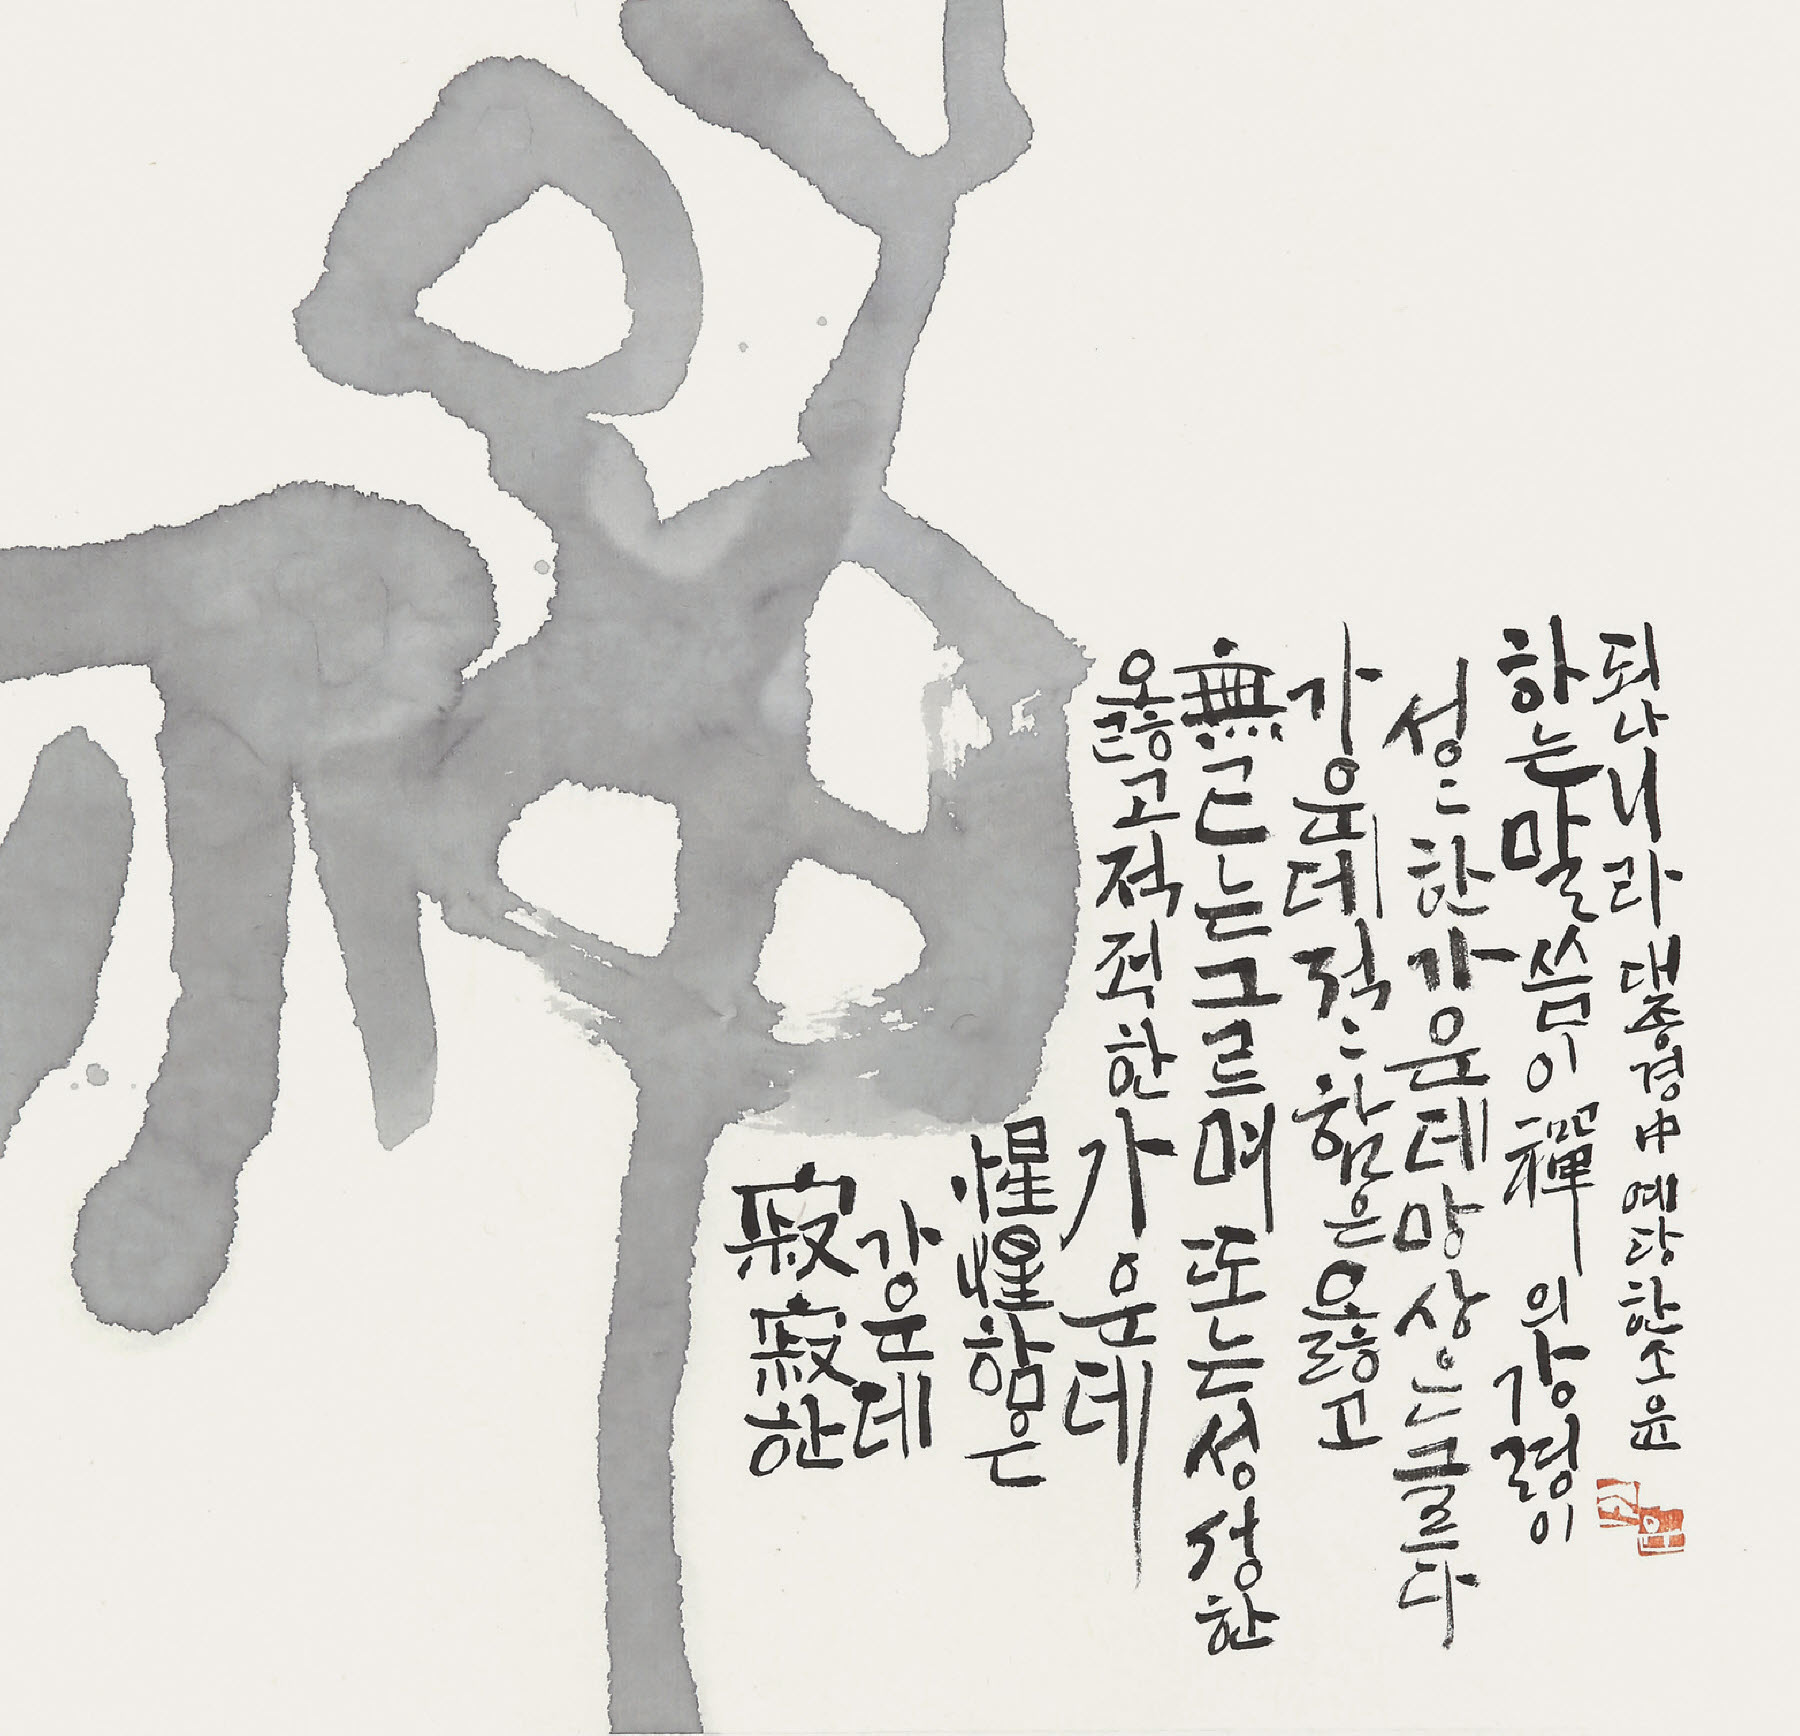 禪
寂寂한
가운데
惺惺함은
옳고적적한가운데
無記는그르며또는성성한
가운데적〻함은옳고
성〻한가운데망상은그르다
하는말씀이禪의강령이
되나니라 대종경中 예당한소윤
소윤